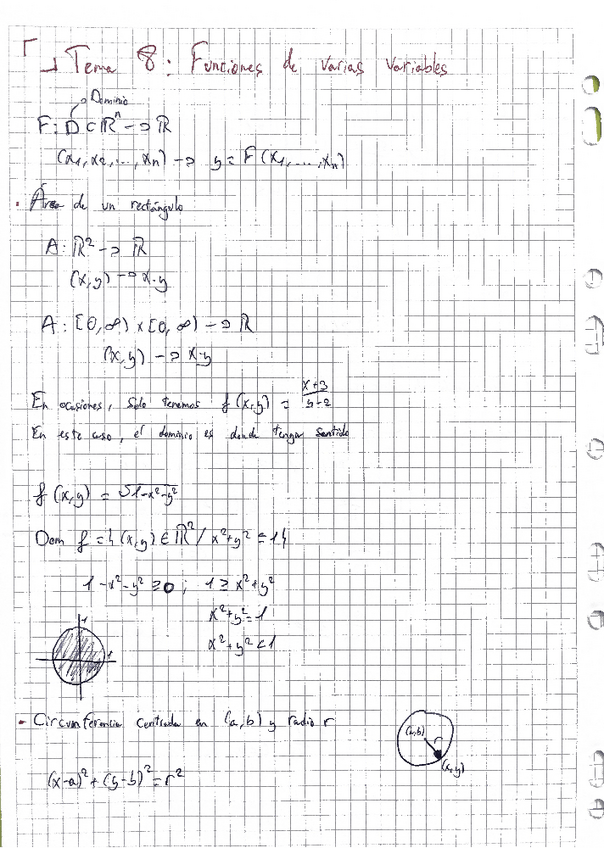 Tema 8: Funciones de varias variables
Dominio
F: D ⊂ ℝⁿ → ℝ
(x₁, x₂, ..., xₙ) → y = F(x₁, ..., xₙ)
· Área de un rectángulo
A: ℝ² → ℝ
(x,y) → x·y
A: [0,∞) x [0,∞) → ℝ
(x,y) → x·y
En ocasiones, solo tenemos f(x,y) = (x+3)/(y-2)
En este caso, el dominio es donde tenga sentido
f(x,y) = √(1-x²-y²)
Dom f = {(x,y) ∈ ℝ² / x²+y² ≤ 1}
1-x²-y² ≥ 0 ; 1 ≥ x²+y²
x²+y² = 1
x²+y² < 1
1
1
· Circunferencia centrada en (a,b) y radio r
(a,b)
r
(x,y)
(x-a)² + (y-b)² = r²